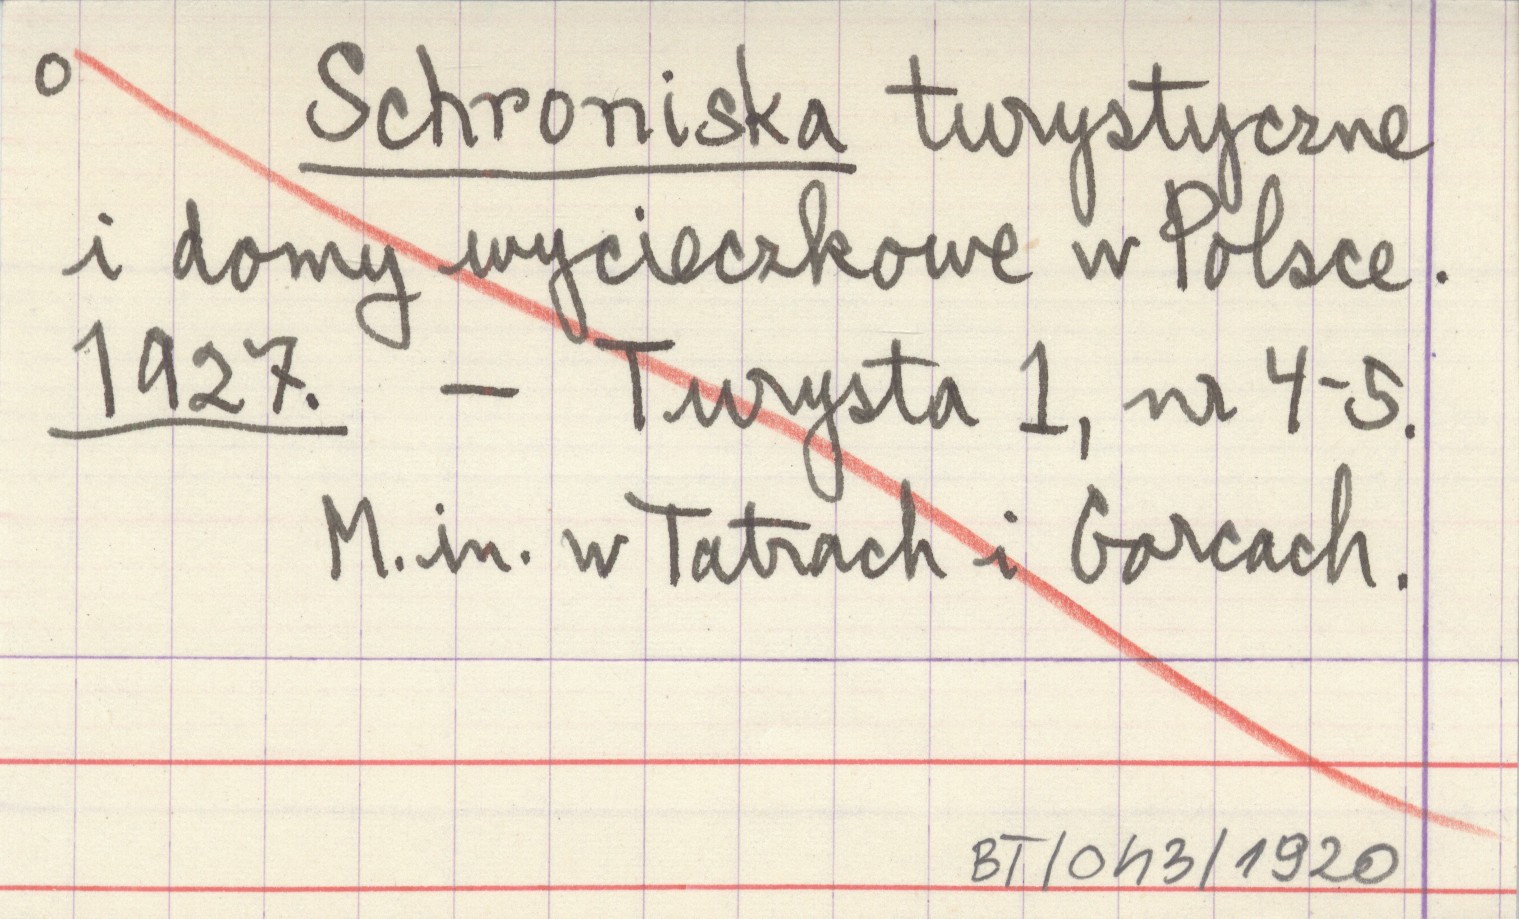 o Schroniska turystyczne
i domy wycieczkowe w Polsce.
1927. — Turysta 1, nr 4-5.
M. in. w Tatrach i Gorcach.
BT/043/1920